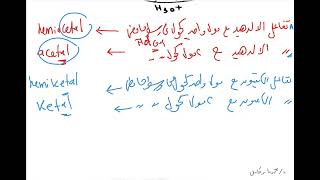 H3O+
hemiacetal ← تفاعل الالدهيد مع مولا واحد كحول في وسط حامضي
HCl
acetal ← " الالدهيد مع ٢مولا كحول " "
hemiketal ← تفاعل الكيتون مع مولا واحد كحول في وسط حامضي
Ketal ← " الكيتون مع ٢مولا كحول " "